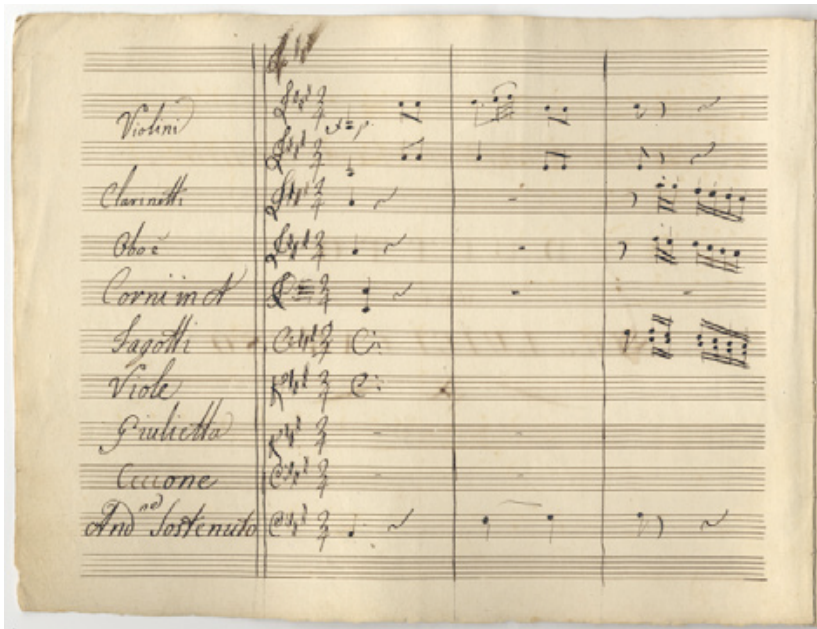 Violini
Clarinetti
Oboè
Corni in A
Fagotti
Viole
Giulietta
Ceccone
And.no Sostenuto